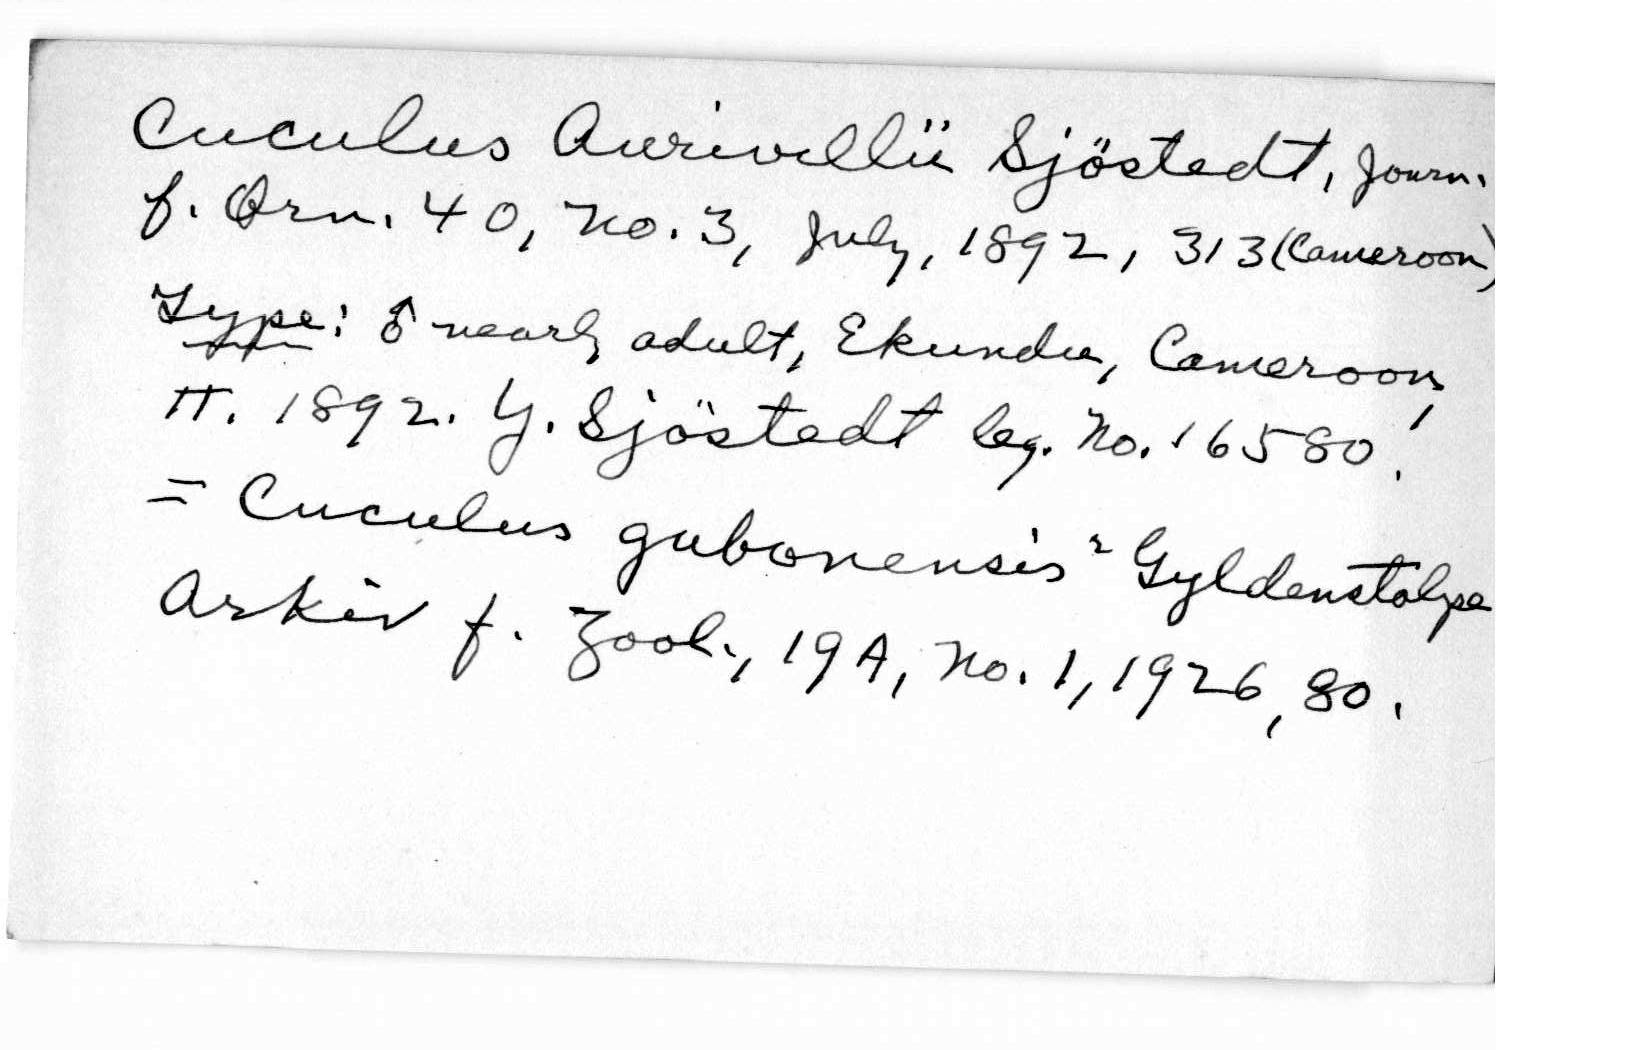 Cuculus Aurivillii Sjöstedt, Journ.
f. Orn. 40, No. 3, July, 1892, 313 (Cameroon)
Type: ♂ nearly adult, Ekundu, Cameroon,
II. 1892. Y. Sjöstedt leg. No. 16580!
= Cuculus gabonensis Gyldenstolpe
Arkiv f. Zool., 19A, No. 1, 1926, 80.